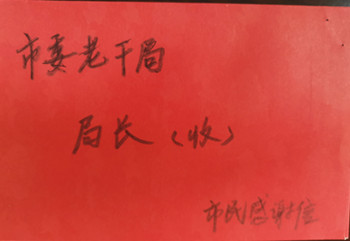 市委老干局
局长（收）
市民感谢信